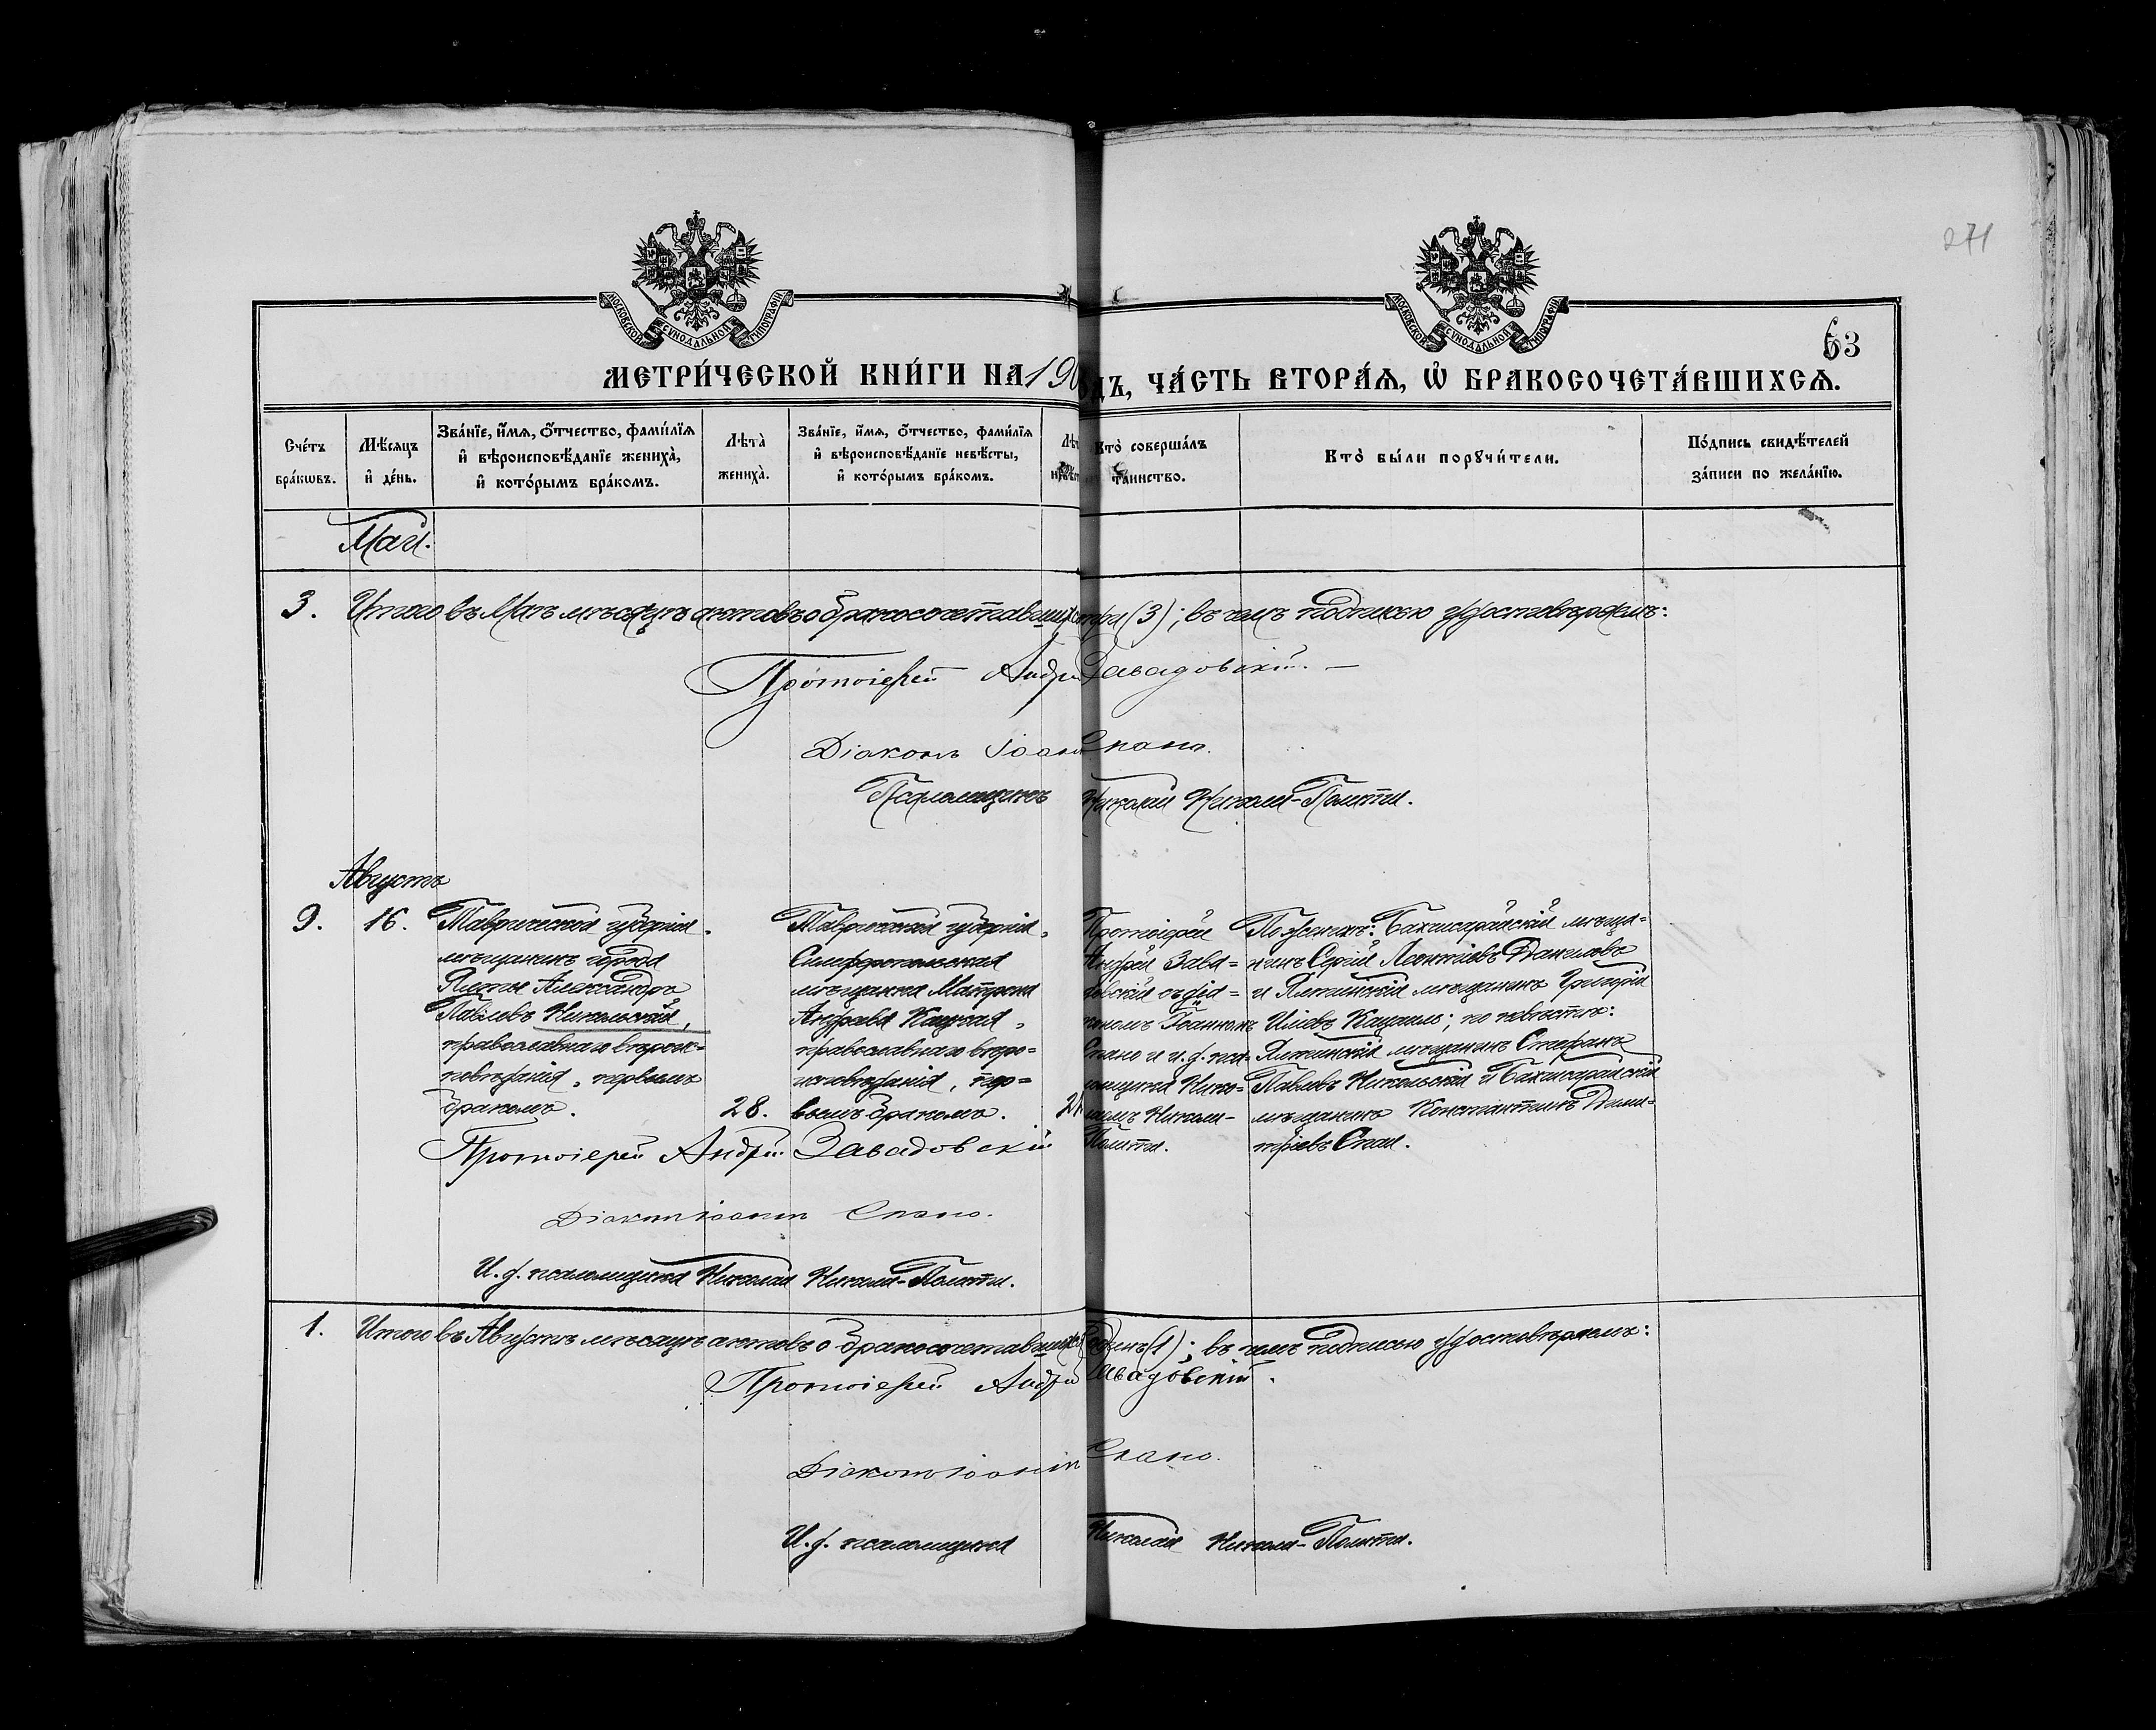 271
63
МОСКОВСКОЙ СѴНОДАЛЬНОЙ ТИПОГРАФІИ
МОСКОВСКОЙ СѴНОДАЛЬНОЙ ТИПОГРАФІИ
МЕТРИ́ЧЕСКОЙ КНИ́ГИ НА 190
ДЪ, ЧА́СТЬ ВТОРА́Ѧ, Ѽ БРАКОСОЧЕТА́ВШИХСѦ.
Сче́тъ бра́кѡвъ.
Мѣ́сѧцъ и҆ де́нь.
Зва́нїе, и҆́мѧ, ѻ҆́тчество, фами́лїѧ
и҆ вѣроисповѣ́данїе жениха̀,
и҆ кото́рымъ бра́комъ.
Лѣта̀ жениха̀.
Зва́нїе, и҆́мѧ, ѻ҆́тчество, фами́лїѧ
и҆ вѣроисповѣ́данїе невѣ́сты,
и҆ кото́рымъ бра́комъ.
Кто̀ соверша́лъ таинство.
Кто̀ бы́ли порꙋчи́тели.
По́дпись свидѣ́телей
за́писи по жела́нїю.
Май.
3. Итого въ Маѣ мѣсяцѣ актовъ о бракосочетавших три (3); въ чемъ подписью удостовѣряемъ:
Протоіерей Андрей Завадовскій.
Діаконъ Іоаннъ Спано.
Псаломщикъ Николай Николи-Политти.
Августъ
9. 16.
Таврической губерніи,
мѣщанинъ города
Ялты Александръ
Павловъ Никольскій,
православнаго вѣроис=
повѣданія, первымъ
бракомъ.
28.
Таврической губерніи,
Симферопольская
мѣщанка Матрона
Андреева
православнаго вѣро=
исповѣданія, пер=
вымъ бракомъ.
Протоіерей
Андрей Зава=
довскій съ діа=
кономъ Іоанномъ
Спано и и. д. пса=
ломщика Нико=
лаемъ Николи-
Политти.
По женихѣ: Бахчисарайскій мѣща=
нинъ Сергій Леонтіевъ Даниловъ
и Ялтинскій мѣщанинъ Григорій
Ильевъ; по невѣстѣ:
Ялтинскій мѣщанинъ Стефанъ
Павловъ Никольскій и Бахчисарайскій
мѣщанинъ Константинъ Дими=
тріевъ Спаи.
Протоіерей Андрей Завадовскій
Діаконъ Іоаннъ Спано.
И. д. псаломщика Николай Николи-Политти.
1. Итого въ Августѣ мѣсяцѣ актовъ о бракосочетавшихся одинъ (1); въ чемъ подписью удостовѣряемъ:
Протоіерей Андрей Завадовскій.
Діаконъ Іоаннъ Спано.
И. д. псаломщика Николай Николи-Политти.